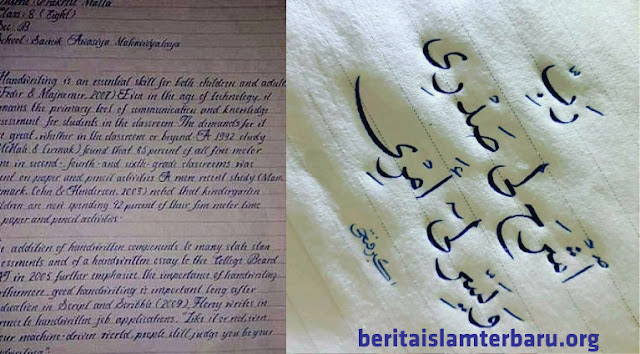 Prakriti Malla
Class: 8 (Eight)
Sec: B
School: Sainik Awasiya Mahavidyalaya
Handwriting is an essential skill for both children and adults
(Feder & Majnemer, 2007) Even in the age of technology, it
remains the primary tool of communication and knowledge
assessment for students in the classroom. The demands for it
great, whether in the classroom or beyond. A 1992 study
(McHale & Cermak) found that 85 percent of all fine motor
time in second- fourth- and sixth-grade classrooms was
on paper and pencil activities. A more recent study (Marr,
Cohn & Henderson, 2003) noted that kindergarten
children are now spending 42 percent of their fine motor time
paper and pencil activities.
addition of handwritten components to many state stan
assessments and of a handwritten essay to the College Board
in 2005 further emphasis the importance of handwriting
furthermore, good handwriting is important long after
graduation in Script and Scribble (2009), Florey writes in
to handwritten job applications. "Like it or not, even
our machine-driven world, people still judge you by your
handwriting"
رَبِّ
اشْرَحْ لِى صَدْرِى
وَيَسِّرْ لِىٓ أَمْرِى
beritaislamterbaru.org